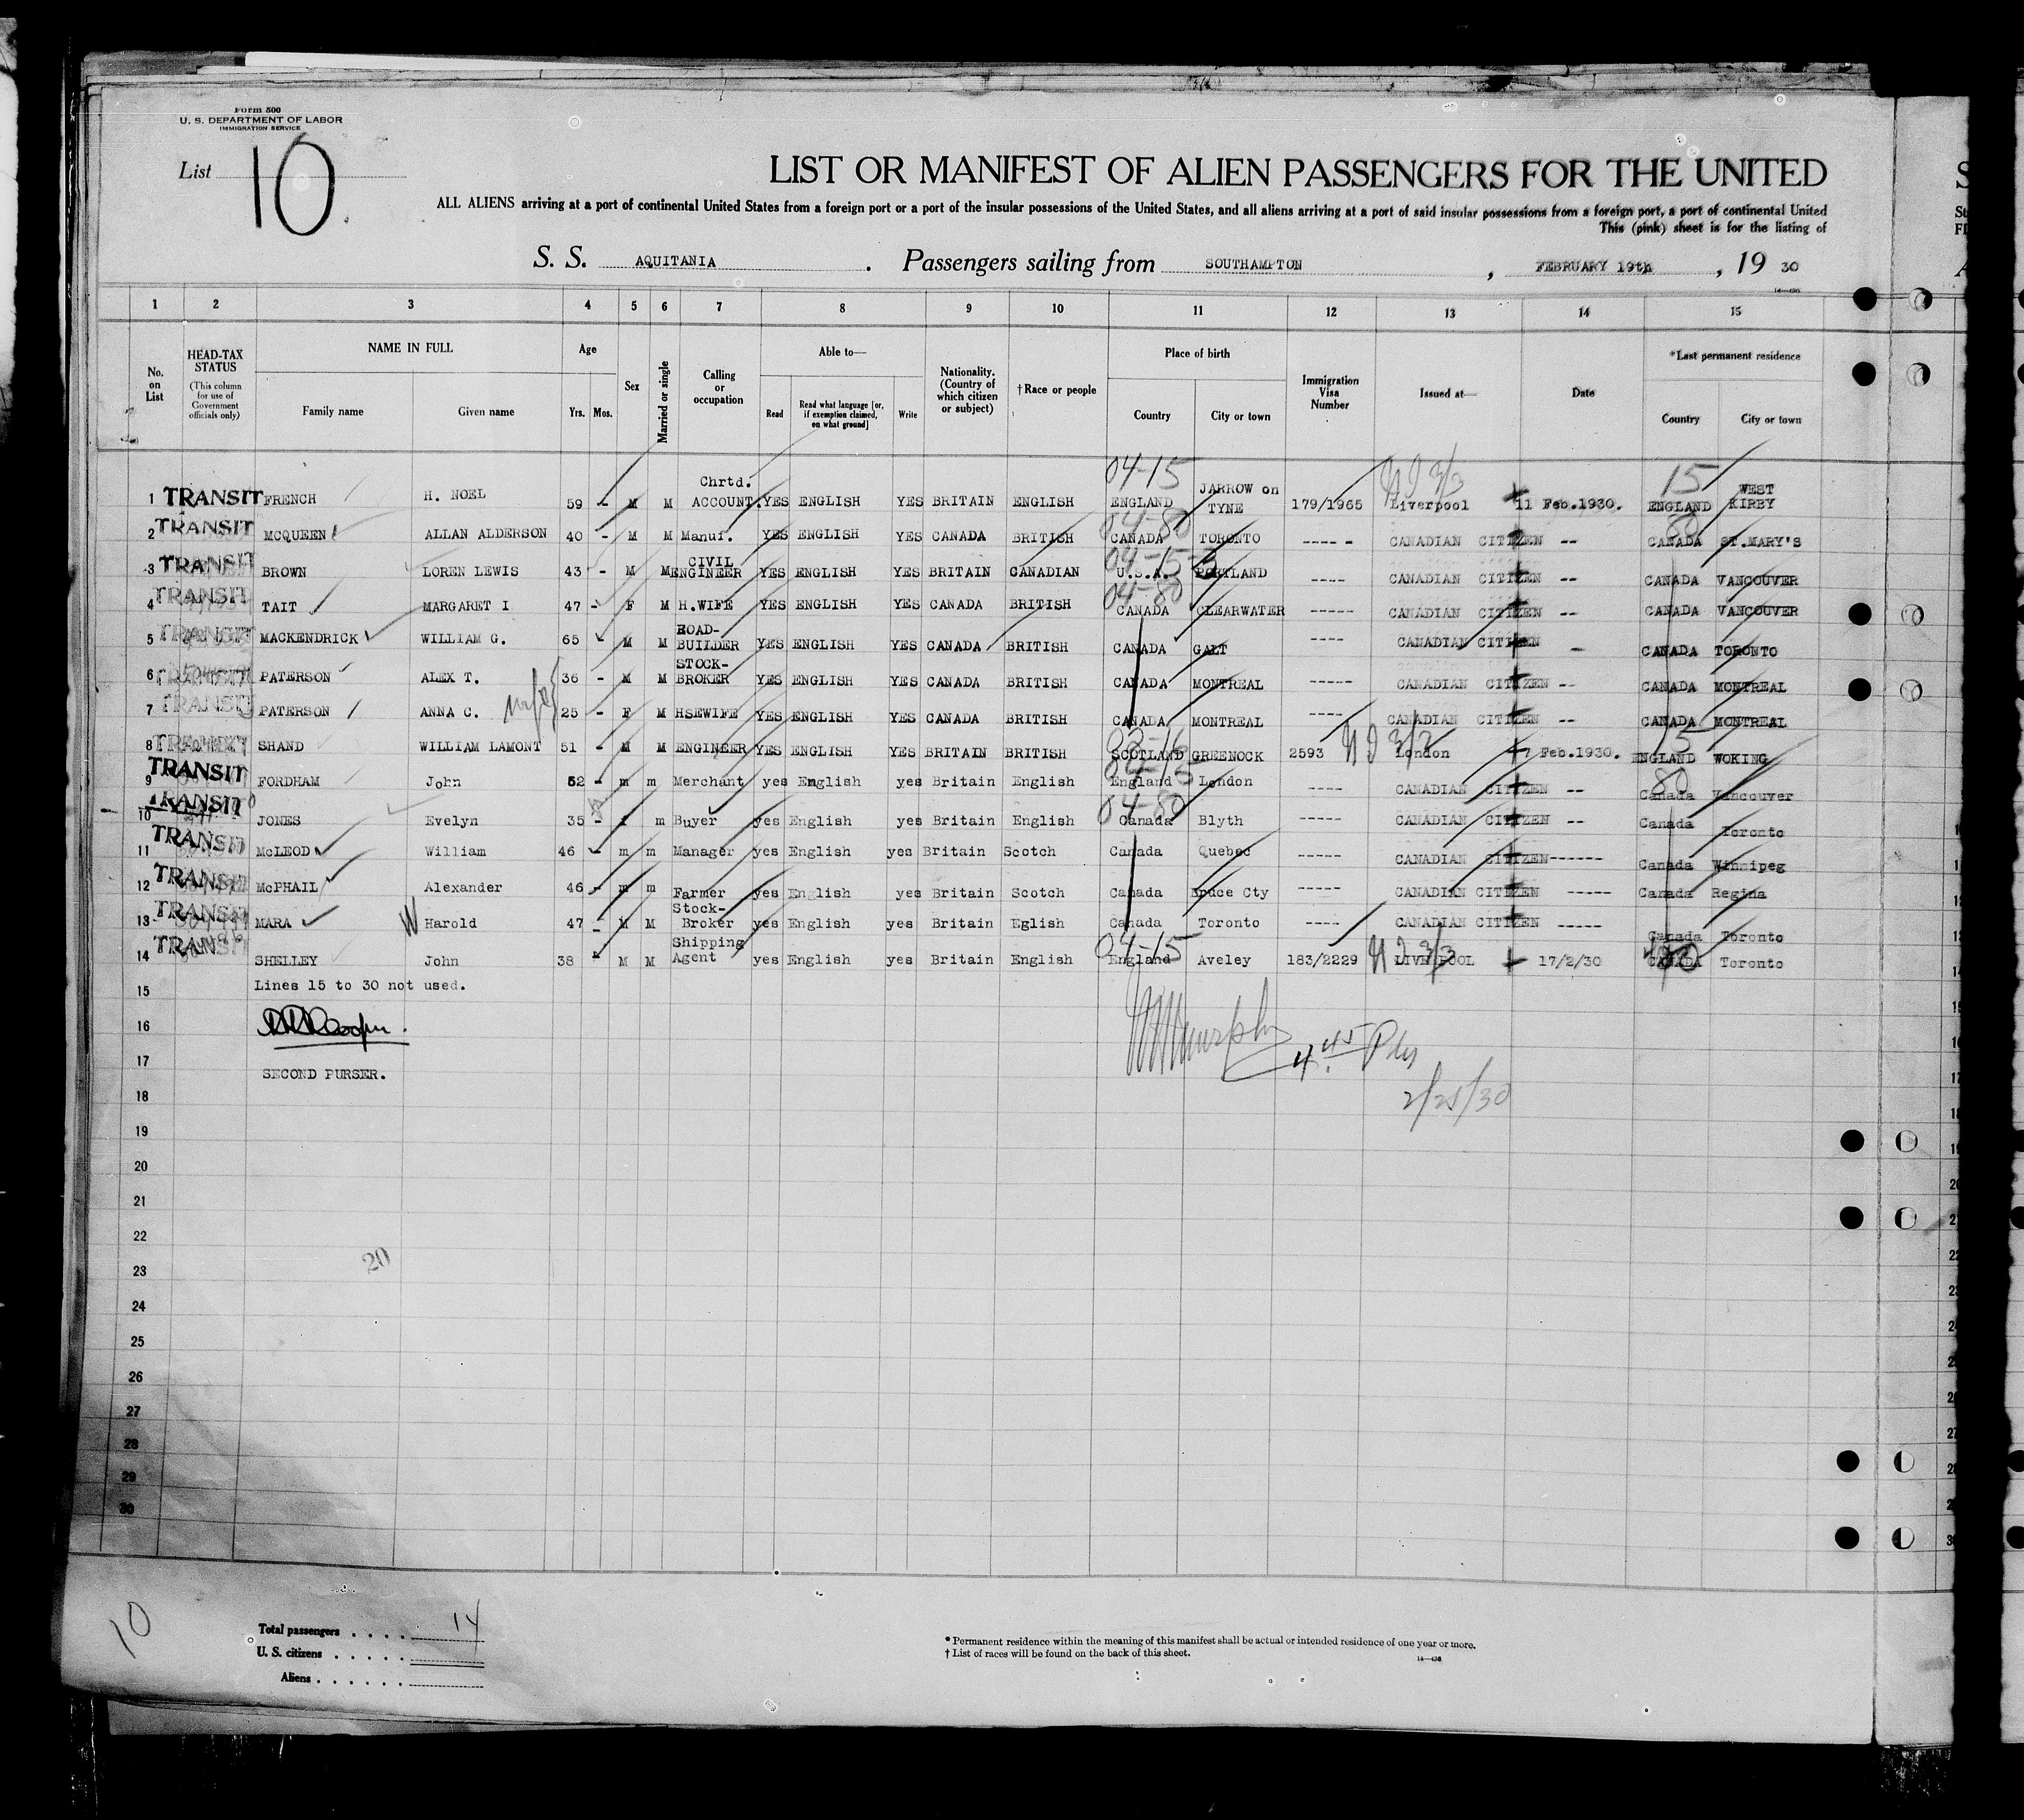 Form 500
U. S. DEPARTMENT OF LABOR
IMMIGRATION SERVICE
List 10
LIST OR MANIFEST OF ALIEN PASSENGERS FOR THE UNITED
ALL ALIENS arriving at a port of continental United States from a foreign port or a port of the insular possessions of the United States, and all aliens arriving at a port of said insular possessions from a foreign port, a port of continental United
This (pink) sheet is for the listing of
S. S. AQUITANIA. Passengers sailing from SOUTHAMPTON, FEBRUARY 19th, 19 30
1 2 3 4 5 6 7 8 9 10 11 12 13 14 15
No. on List
HEAD-TAX STATUS (This column for use of Government officials only)
NAME IN FULL Family name Given name
Age Yrs. Mos.
Sex
Married or single
Calling or occupation
Able to— Read Read what language [or, if exemption claimed, on what ground] Write
Nationality. (Country of which citizen or subject)
† Race or people
Place of birth Country City or town
Immigration Visa Number
Issued at—
Date
*Last permanent residence Country City or town
1 TRANSIT FRENCH H. NOEL 59 - M M Chrtd. ACCOUNT. YES ENGLISH YES BRITAIN ENGLISH 04-15 ENGLAND JARROW on TYNE 179/1965 Liverpool 11 Feb.1930. 15 ENGLAND WEST KIRBY
2 TRANSIT MCQUEEN ALLAN ALDERSON 40 - M M Manuf. YES ENGLISH YES CANADA BRITISH 04-80 CANADA TORONTO ---- - CANADIAN CITIZEN -- 80 CANADA ST.MARY'S
3 TRANSIT BROWN LOREN LEWIS 43 - M M CIVIL ENGINEER YES ENGLISH YES BRITAIN CANADIAN U.S.A. PORTLAND ---- CANADIAN CITIZEN -- CANADA VANCOUVER
4 TRANSIT TAIT MARGARET I 47 - F M H.WIFE YES ENGLISH YES CANADA BRITISH 04-80 CANADA CLEARWATER ----- CANADIAN CITIZEN -- CANADA VANCOUVER
5 TRANSIT MACKENDRICK WILLIAM G. 65 M M ROAD-BUILDER YES ENGLISH YES CANADA BRITISH CANADA GALT ---- CANADIAN CITIZEN - CANADA TORONTO
6 TRANSIT PATERSON ALEX T. 36 - M M STOCK-BROKER YES ENGLISH YES CANADA BRITISH CANADA MONTREAL ----- CANADIAN CITIZEN -- CANADA MONTREAL
7 TRANSIT PATERSON ANNA C. 25 - F M HSEWIFE YES ENGLISH YES CANADA BRITISH CANADA MONTREAL ---- CANADIAN CITIZEN -- CANADA MONTREAL
8 TRANSIT SHAND WILLIAM LAMONT 51 - M M ENGINEER YES ENGLISH YES BRITAIN BRITISH SCOTLAND GREENOCK 2593 London 7 Feb.1930. 15 ENGLAND WOKING
9 TRANSIT FORDHAM John 52 - m m Merchant yes English yes Britain English 04-15 England London ---- CANADIAN CITIZEN -- 80 Canada Vancouver
10 TRANSIT JONES Evelyn 35 - f m Buyer yes English yes Britain English 04-80 Canada Blyth ---- CANADIAN CITIZEN -- Canada Toronto
11 TRANSIT McLEOD William 46 - m m Manager yes English yes Britain Scotch Canada Quebec ----- CANADIAN CITIZEN------ Canada Winnipeg
12 TRANSIT McPHAIL Alexander 46 - m m Farmer yes English yes Britain Scotch Canada Bruce Cty ----- CANADIAN CITIZEN ----- Canada Regina
13 TRANSIT MARA Harold 47 - M M Stock-Broker yes English yes Britain Eglish Canada Toronto ---- CANADIAN CITIZEN ----- Canada Toronto
14 TRANSIT SHELLEY John 38 - M M Shipping Agent yes English yes Britain English 04-15 England Aveley 183/2229 LIVERPOOL 17/2/30 CANADA Toronto
15 Lines 15 to 30 not used.
16
17 SECOND PURSER.
4.45 PM
18 2/25/30
19
20
21
22
23 20
24
25
26
27
28
29
30
10
Total passengers . . . . 14
U. S. citizens . . . . .
Aliens . . . . . .
* Permanent residence within the meaning of this manifest shall be actual or intended residence of one year or more.
† List of races will be found on the back of this sheet.